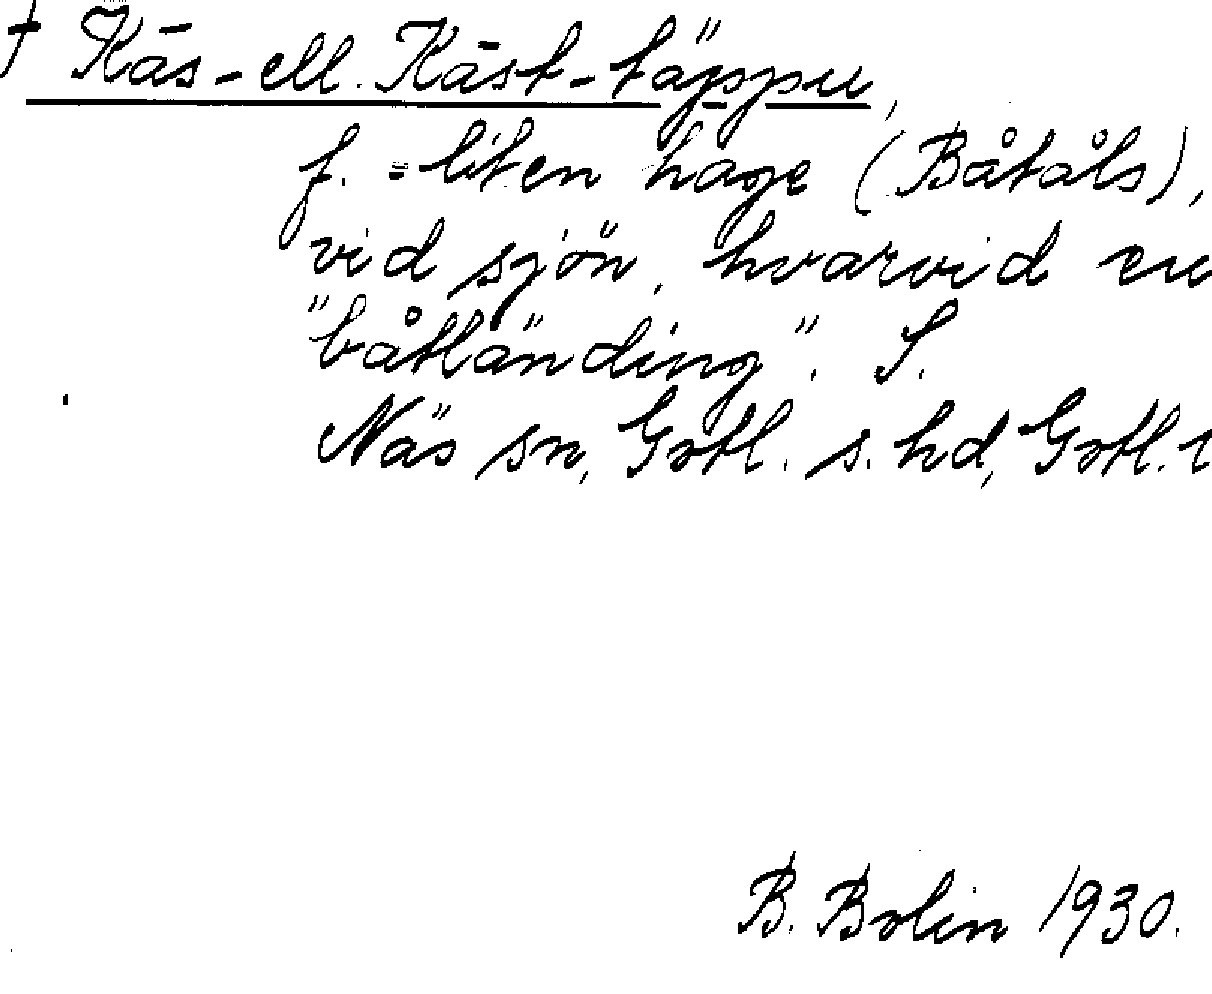 † Kās- ell. Kāst-täppu,
f. = liten hage (Båtåls),
vid sjön, hvarvid en
"båtländing". S.
Näs sn, Gotl. s. hd, Gotl. l
B. Bolin 1930.